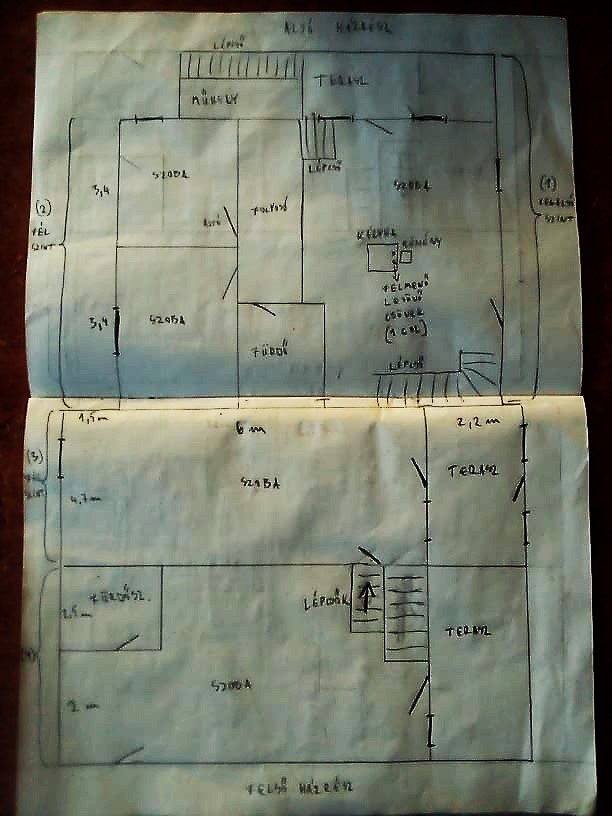 ALSÓ HÁZRÉSZ
LÉPCSŐ
TERASZ
MŰHELY
LÉPCSŐ
(2)
FÉL
SZINT
3,4
SZOBA
AJTÓ
FOLYOSÓ
SZOBA
(1)
LEGALSÓ
SZINT
KÁLYHA
KÉMÉNY
FELMENŐ
LEJÖVŐ
CSÖVEK
(1 COL)
3,4
SZOBA
FÜRDŐ
LÉPCSŐ
1,5m
6 m
2,2 m
(3)
FÉL
SZINT
4,7 m
SZOBA
TERASZ
FÜRDŐSZ.
LÉPCSŐK
TERASZ
(4)
SZOBA
2 m
FELSŐ HÁZRÉSZ